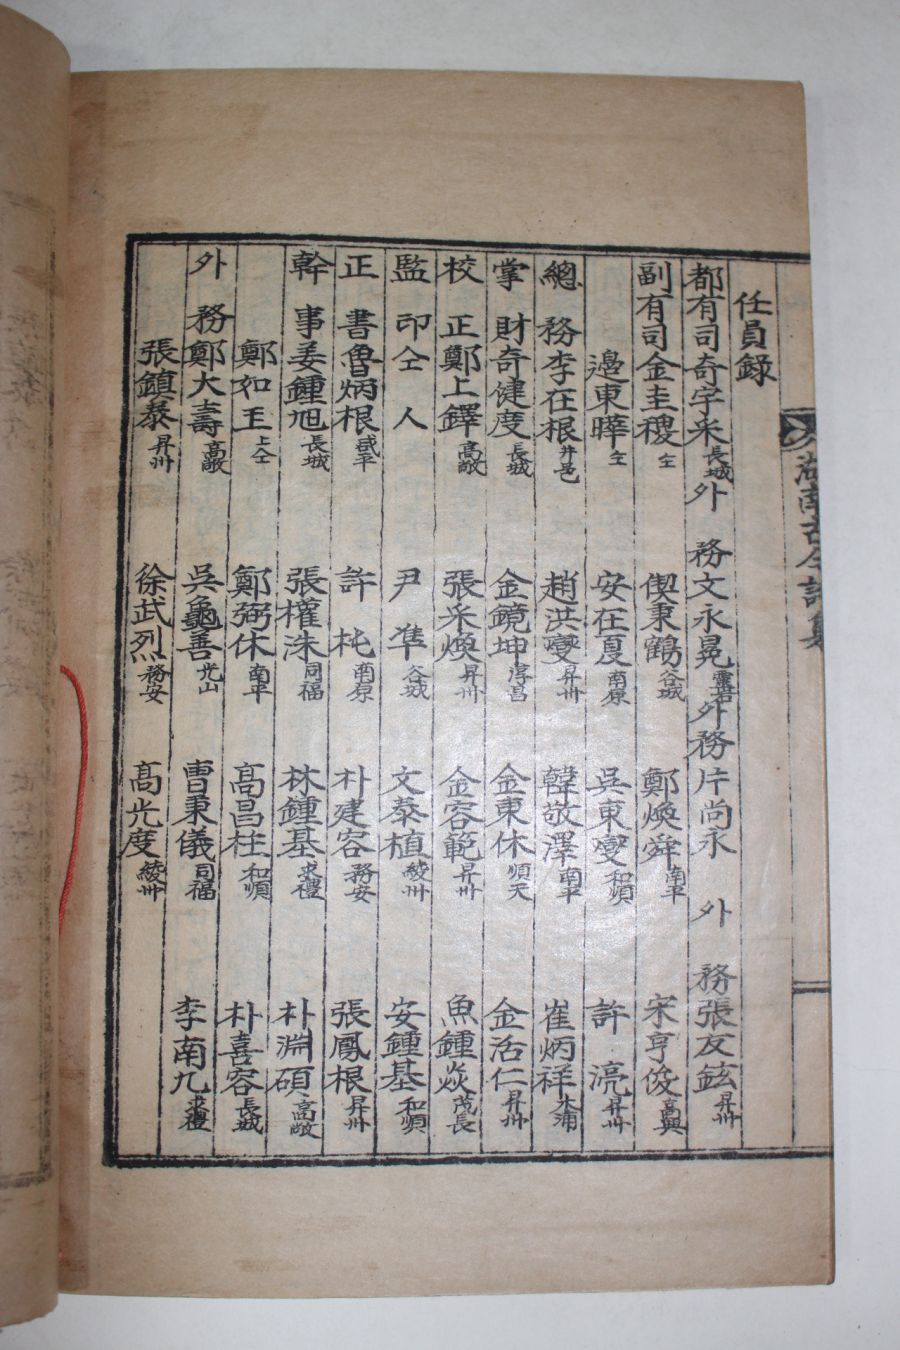 湖南古今詩集
任員錄
都有司奇宇采長城 外務文永晃靈岩 外務片尚永 外務張友鉉昇州
副有司金圭稷仝 偰秉鶴谷城 鄭煥舜南平 宋亨俊高興
邉東曄仝 安在夏南原 吳東燮和順 許湸昇州
總務李在根井邑 趙洪燮昇州 韓敬澤南平 崔炳祥木浦
掌財奇健度長城 金鏡坤淳昌 金東休順天 金活仁昇州
校正鄭上鐸高敞 張采煥昇州 金容範昇州 魚鍾焱茂長
監印仝人 尹準谷城 文泰植綾州 安鍾基和順
正書魯炳根咸平 許杶南原 朴建容務安 張鳳根昇州
幹事姜鍾旭長城 張權洙同福 林鍾基求禮 朴淵碩高敞
鄭如玉上仝 鄭弼休南平 高昌柱和順 朴喜容長城
外務鄭大壽高敞 吳龜善光山 曺秉儀同福 李南九求禮
張鎭泰昇州 徐武烈務安 高光度綾州